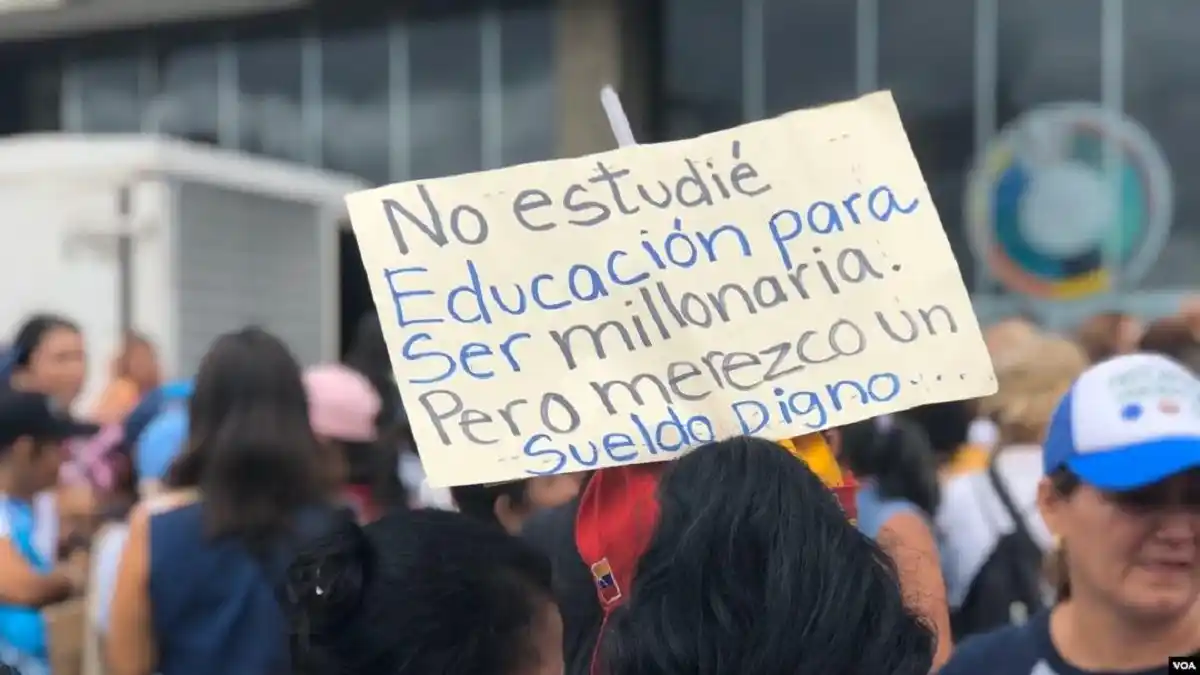 No estudié
Educación para
Ser millonaria.
Pero merezco un
Sueldo Digno....
VOA